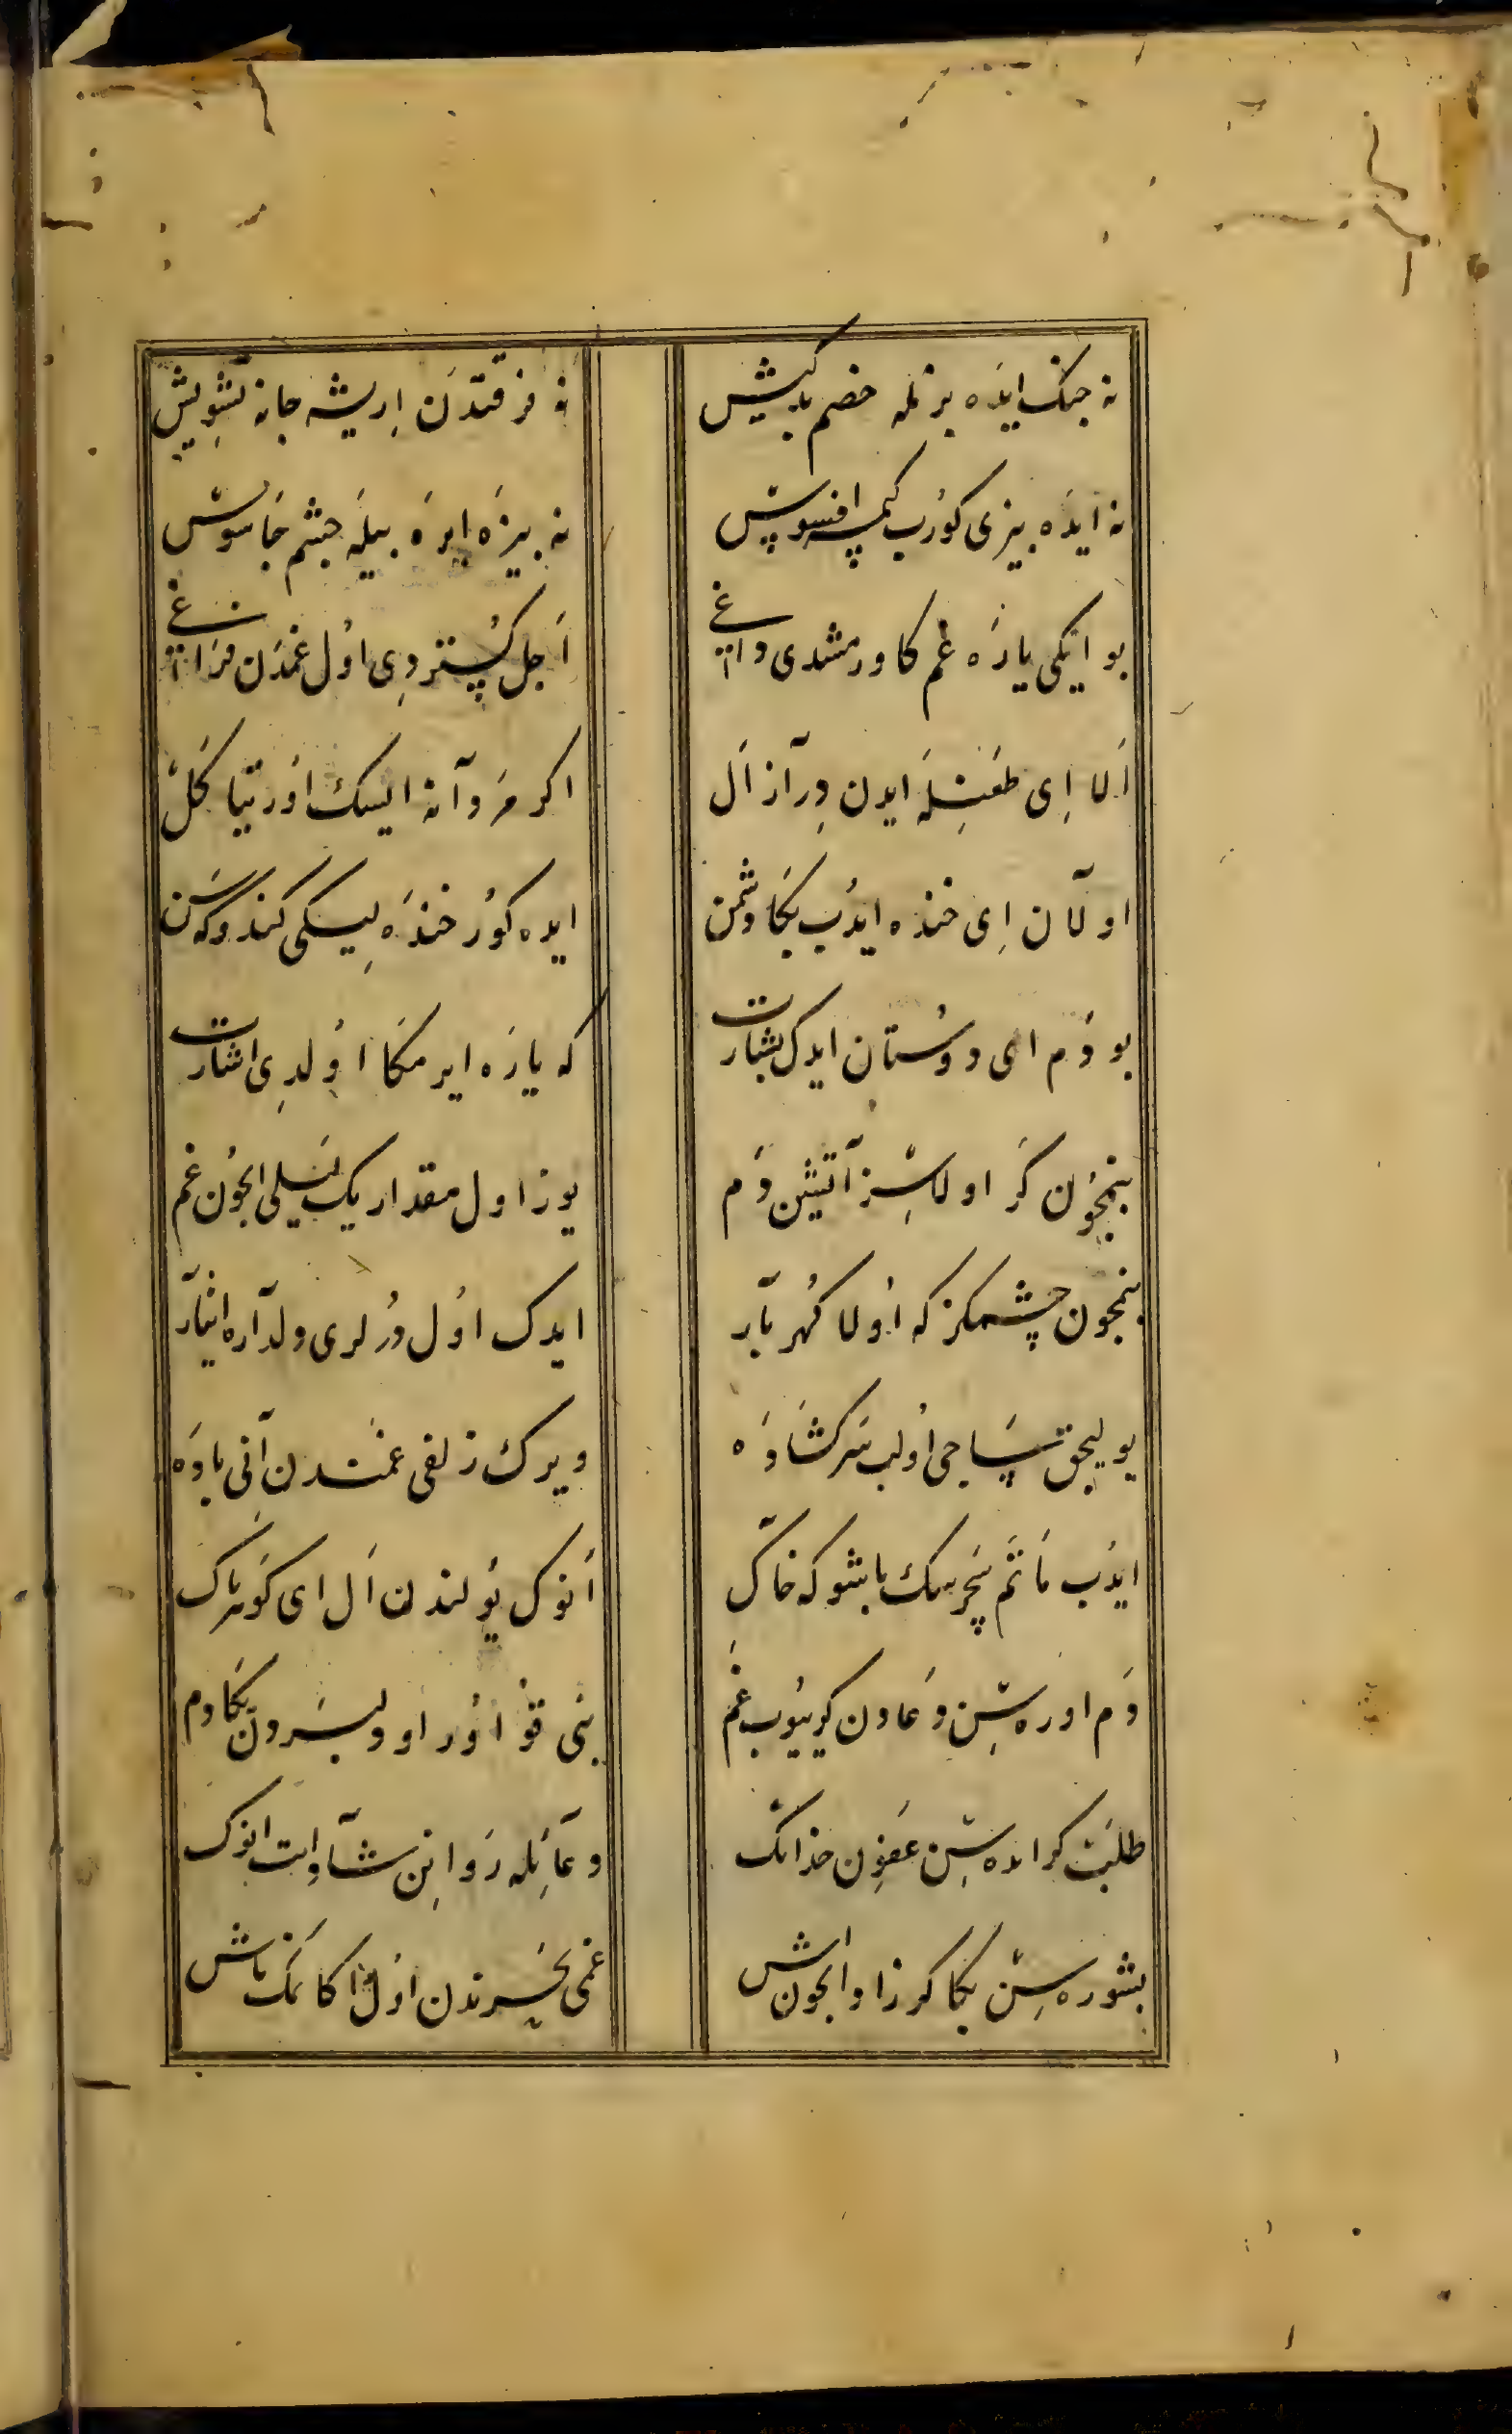 نه جنك ایَده بزنله خصم بدكیش
نه فرقتدَن اِریشه جانه تشوِیش
نه ایدَه بیزی كوُرب كمسه افسوس
نه بیزَه ایرَه بیلَه جشم جَاسوس
بو ایكی یارَه غم كا ورمشدی داغ
اَجل كُستردِی اوُل غمدَن فرَاغ
اَلا اِی طعَنِلَه ایدن دِرآز اَل
اكر مَردآنه ایسك اوُر بَیا كَل
اولآن اِی خنده ایدُب بكَا دشمن
ایده كوُر خندَه لِیكی كندوكه سَن
بو دَم ای دوُستان ایدك بشارت
كه یارَه ایرمكَا اوُلدِی اشارت
بنمچُون كَر اولاسِز آتشین دَم
یوز اول مقدار یك لیلی ایچوُن غم
بنمچون چشمكز كه اوُلا كُهر بآر
ایدك اوُل دُرلری دلدآره ایثآر
یولیجق سَاچی اوُلب سَركشَادَه
ویرك زلفی غمندن آنی بادَه
ایدُب مَاتَم سَچرسك باشوكه خاَك
اَنوك یُولندن اَل ای كَوهر پاك
دَم اورَه سِن دعادن كرییوُب غَم
بنی قوُ اوُر او دلبردن بكَا دم
طلبَت كر ایده سِن عَفوِن خدانك
دعآئِله رَوانِن شآد ایت انوك
بشوره سِن بكا كر زاد ایچون اش
غمی بحَرندن اوُل آكا نمك باش